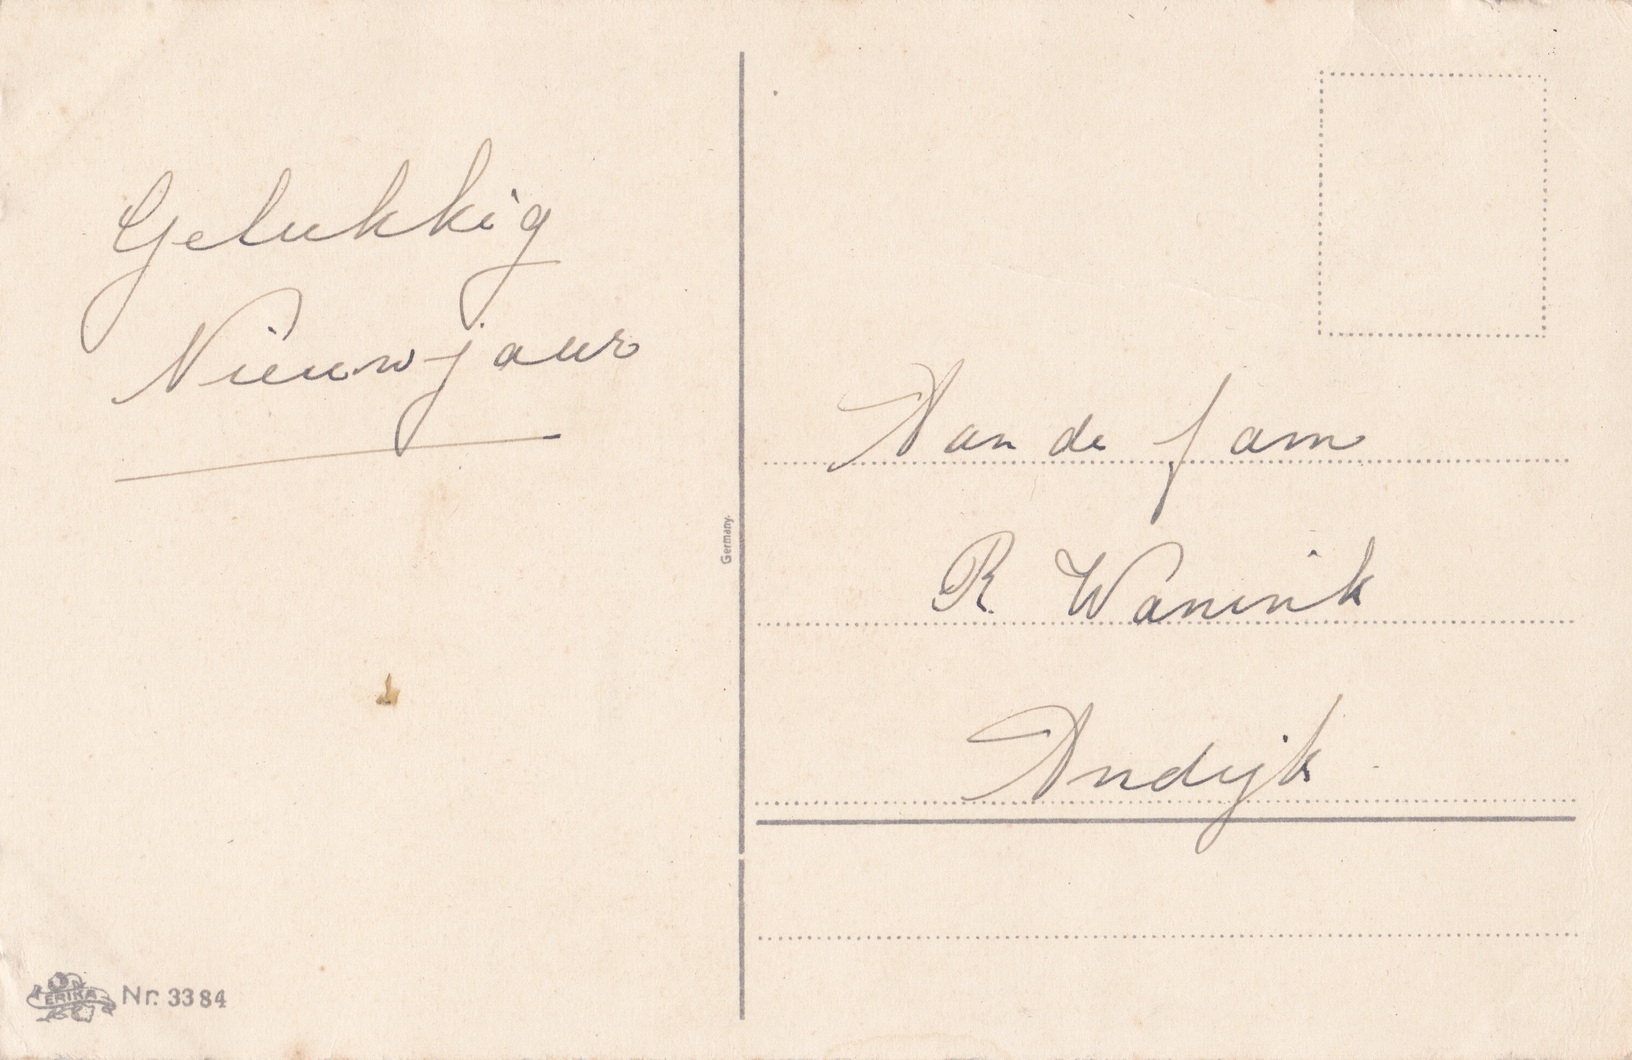 Gelukkig
Nieuwjaar
Aan de fam
R Wanink
Andijk
Germany.
ERIKA Nr. 3384